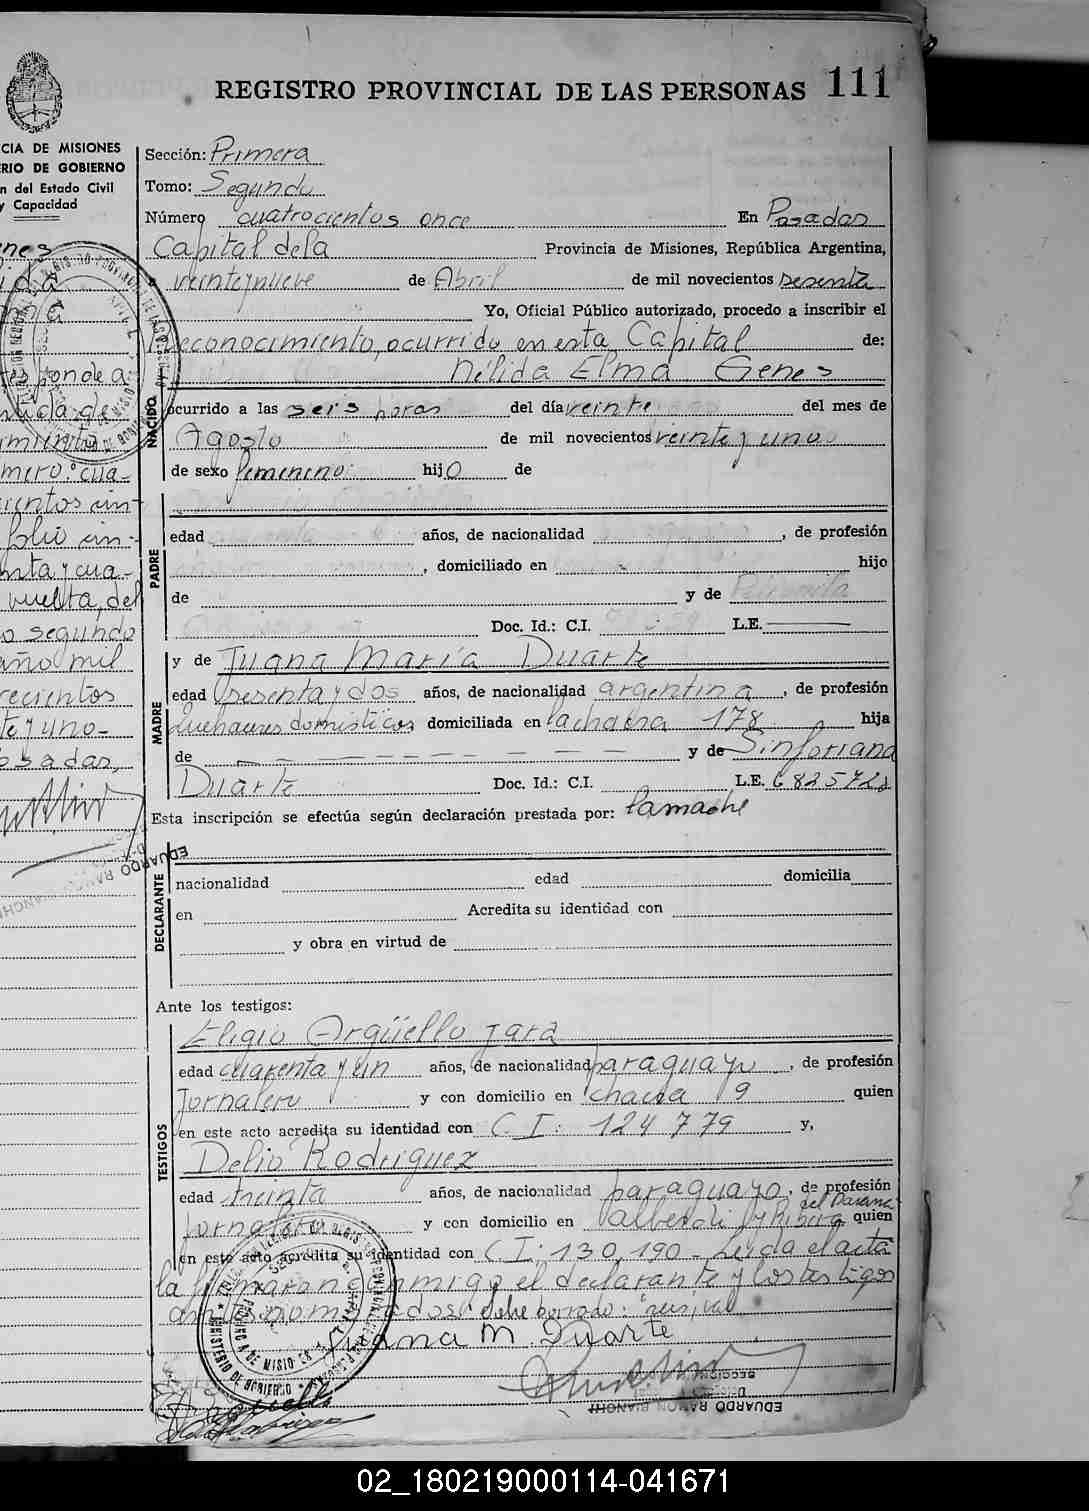 REGISTRO PROVINCIAL DE LAS PERSONAS 111
CIA DE MISIONES
RIO DE GOBIERNO
n del Estado Civil
y Capacidad
Sección: Primera
Tomo: Segundo
Número cuatrocientos once En Posadas
Capital dela Provincia de Misiones, República Argentina,
veinte y nueve de Abril de mil novecientos sesenta
Yo, Oficial Público autorizado, procedo a inscribir el
Reconocimiento, ocurrido en esta Capital de:
Nélida Elma Genes
NACIDO
ocurrido a las seis horas del día veinte del mes de
Agosto de mil novecientos veinte y uno
de sexo femenino hijo de
PADRE
edad años, de nacionalidad , de profesión
, domiciliado en hijo
de y de
Doc. Id.: C.I. L.E.
MADRE
y de Juana María Duarte
edad sesenta y dos años, de nacionalidad argentina, de profesión
quehaceres domésticos domiciliada en la chacra 178 hija
de — — — — — — — y de Sinforiana
Duarte Doc. Id.: C.I. L.E. 6825728
Esta inscripción se efectúa según declaración prestada por: la madre
DECLARANTE
nacionalidad edad domicilia
en Acredita su identidad con
y obra en virtud de
Ante los testigos:
TESTIGOS
Eligio Argüello Jara
edad cuarenta y un años, de nacionalidad paraguayo, de profesión
Jornalero y con domicilio en chacra 9 quien
en este acto acredita su identidad con C.I: 124779 y,
Delio Rodriguez
edad treinta años, de nacionalidad paraguayo, de profesión
Jornalero y con domicilio en Alberdi y Ribera del Paraná quien
en este acto acredita su identidad con C.I: 130,190 - Leida el acta
la firmaran conmigo el declarante y los testigos
antes nombrados
Juana M. Duarte
EDUARDO RAMON BIANCHI
nes
ponde a
mero: cua-
cientos cin-
folio cin-
enta y cua-
vuelta, del
o segundo
año mil
vecientos
te y uno-
osadas,
EDUARDO RAMON
02_180219000114-041671